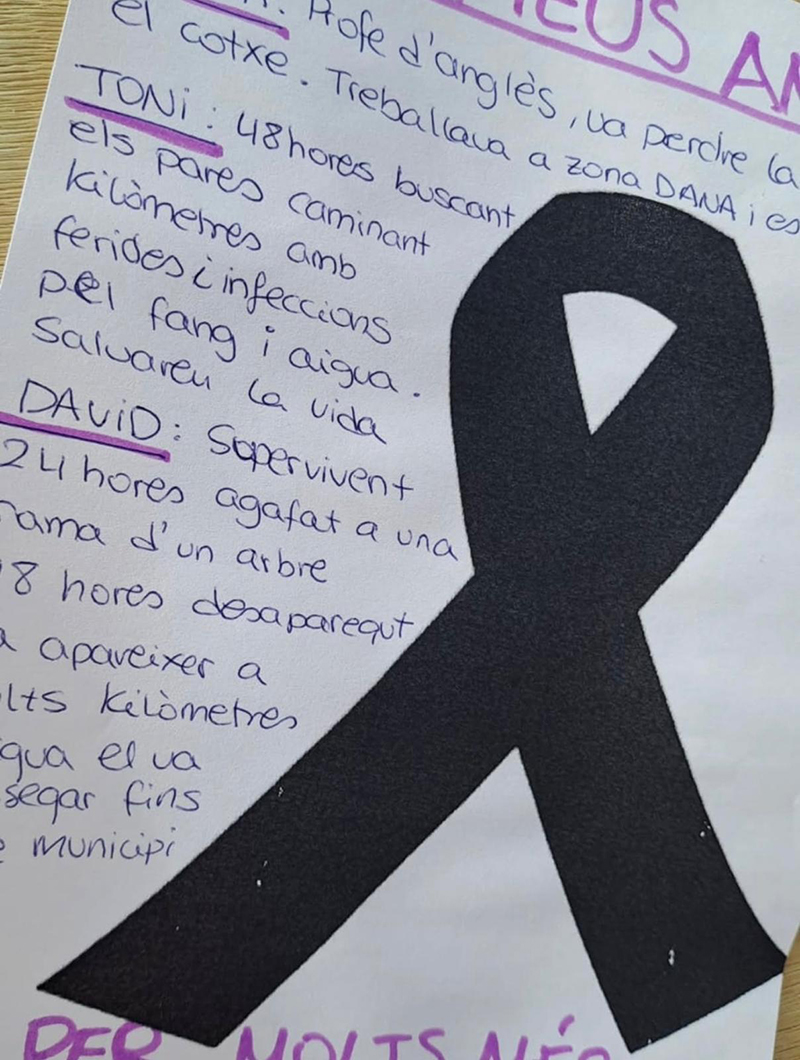 MEUS AM
Profe d'anglès, va perdre la
el cotxe. Treballava a zona DANA i es
TONi: 48 hores buscant
els pares caminant
kilòmetres amb
ferides i infeccions
pel fang i aigua.
Salvareu la vida
DAViD: Supervivent
24 hores agafat a una
rama d'un arbre
8 hores desaparegut
a apareixer a
lts kilòmetres
gua el va
segar fins
e municipi
PER MOLTS MÉS